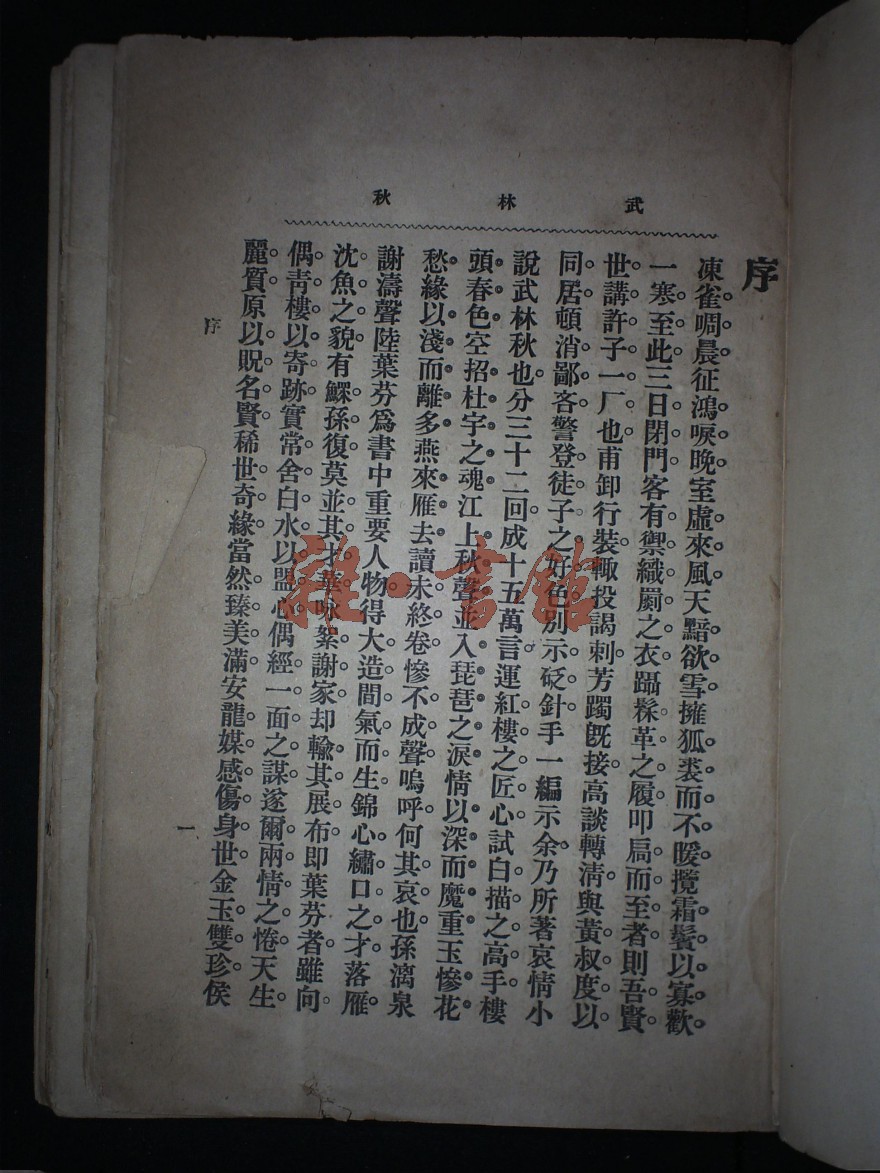 武林秋
序
凍雀啁晨征鴻唳晚室虛來風天黯欲雪擁狐裘而不暖攬霜鬢以寡歡
一寒至此三日閉門客有禦織罽之衣躡髹革之履叩局而至者則吾賢
世講許子一厂也甫卸行裝輙投謁刺芳躅旣接高談轉淸與黃叔度以
同居頓消鄙吝警登徒子之好色別示砭針手一編示余乃所著哀情小
說武林秋也分三十二回成十五萬言運紅樓之匠心試白描之高手樓
頭春色空招杜宇之魂江上秋聲並入琵琶之淚情以深而魔重玉慘花
愁緣以淺而離多燕來雁去讀未終卷慘不成聲嗚呼何其哀也孫漓泉
謝濤聲陸葉芬爲書中重要人物得大造間氣而生錦心繡口之才落雁
沈魚之貌有鰥孫復莫並其才華咏絮謝家却輸其展布卽葉芬者雖向
偶靑樓以寄跡實常舍白水以盟心偶經一面之謀遂爾兩情之惓天生
麗質原以貺名賢稀世奇緣當然臻美滿安龍媒感傷身世金玉雙珍侯
序
一
雜·書館